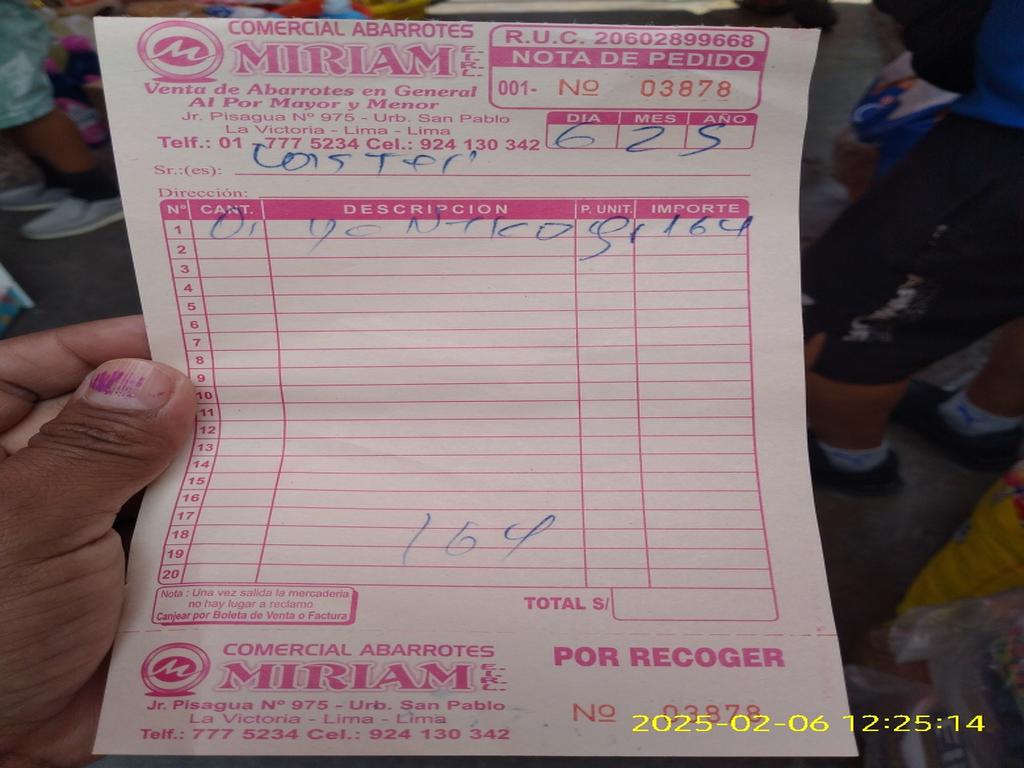 COMERCIAL ABARROTES
MIRIAM E.I.R.L.
Venta de Abarrotes en General
Al Por Mayor y Menor
Jr. Pisagua Nº 975 - Urb. San Pablo
La Victoria - Lima - Lima
Telf.: 01 - 777 5234 Cel.: 924 130 342
R.U.C. 20602899668
NOTA DE PEDIDO
001- Nº 03878
DIA MES AÑO
6 2 5
Sr.:(es):
Dirección:
Nº CANT. DESCRIPCION P. UNIT. IMPORTE
1 164
2
3
4
5
6
7
8
9
10
11
12
13
14
15
16
17
18 164
19
20
Nota : Una vez salida la mercaderia
no hay lugar a reclamo
Canjear por Boleta de Venta o Factura
TOTAL S/
COMERCIAL ABARROTES
MIRIAM E.I.R.L.
Jr. Pisagua Nº 975 - Urb. San Pablo
La Victoria - Lima - Lima
Telf.: 777 5234 Cel.: 924 130 342
POR RECOGER
Nº 03878
2025-02-06 12:25:14